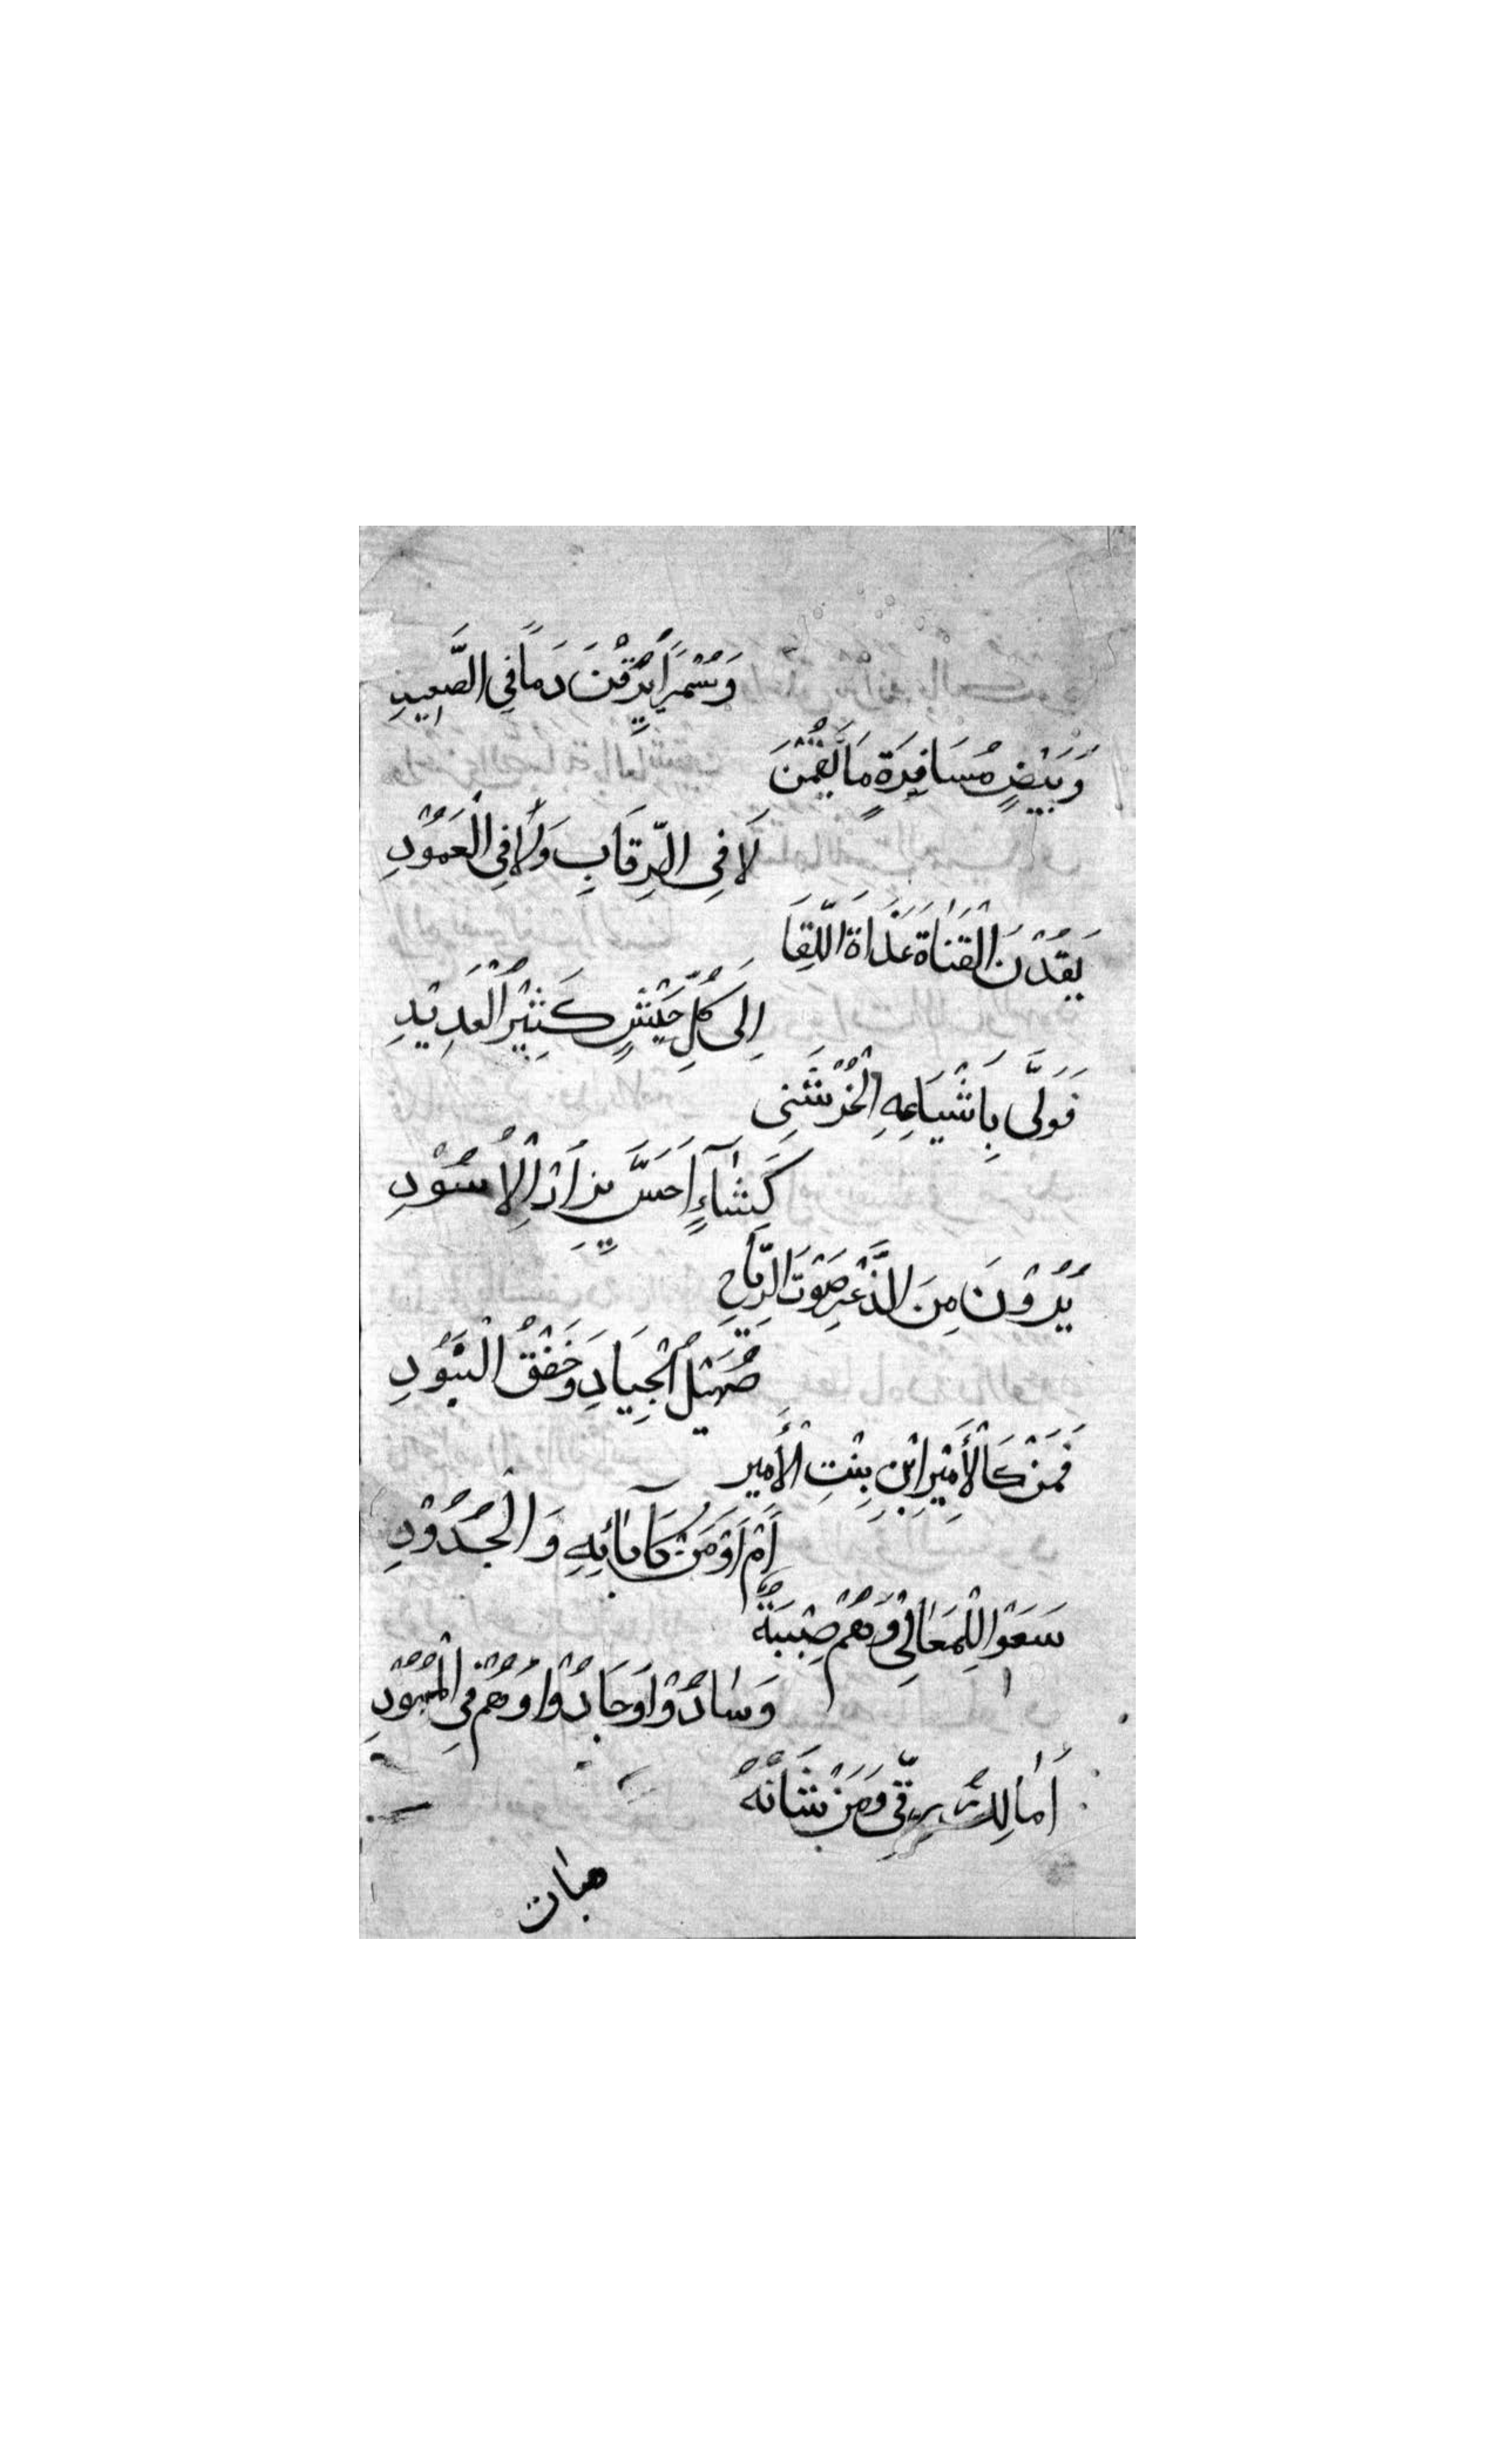 وَسُمْرًا يُرِقْنَ دَمًا فِي الصَّعِيدِ
وَبَيْضٍ مُسَافِرَةٍ مَا يُقِمْنَ
لَا فِي الرِّقَابِ وَلَا فِي الْغُمُوْدِ
يَقُدْنَ الْقَنَاةَ غَدَاةَ اللِّقَا
اِلَى كُلِّ جَيْشٍ كَثِيْرُ الْعَدِيْدِ
فَوَلَّى بِاَشْيَاعِهِ الْخُرْشَنِى
كَشَاءٍ اَحَسَّ بِزَاْرِ الْاُسُوْدِ
يُرَوْنَ مِنَ الذُّعْرِ صَوْتَ الرِّيَاحِ
صُهَيْلُ الْجِيَادِ وَخَفْقُ الْبُنُوْدِ
فَمَنْ كَالْأَمِيْرِ ابْنِ بِنْتِ الْأَمِيْرِ
أَمْ اَوْ مَنْ كَآبَائِهِ وَالْجُدُوْدِ
سَعَوْا لِلْمَعَالِيْ وَهُمْ صِبْيَةٌ
وَسَادُوْا وَجَادُوْا وَهُمْ فِي الْمُهُوْدِ
أَمَالِكُ رِقِّى وَمَنْ شَانُهُ
هبات